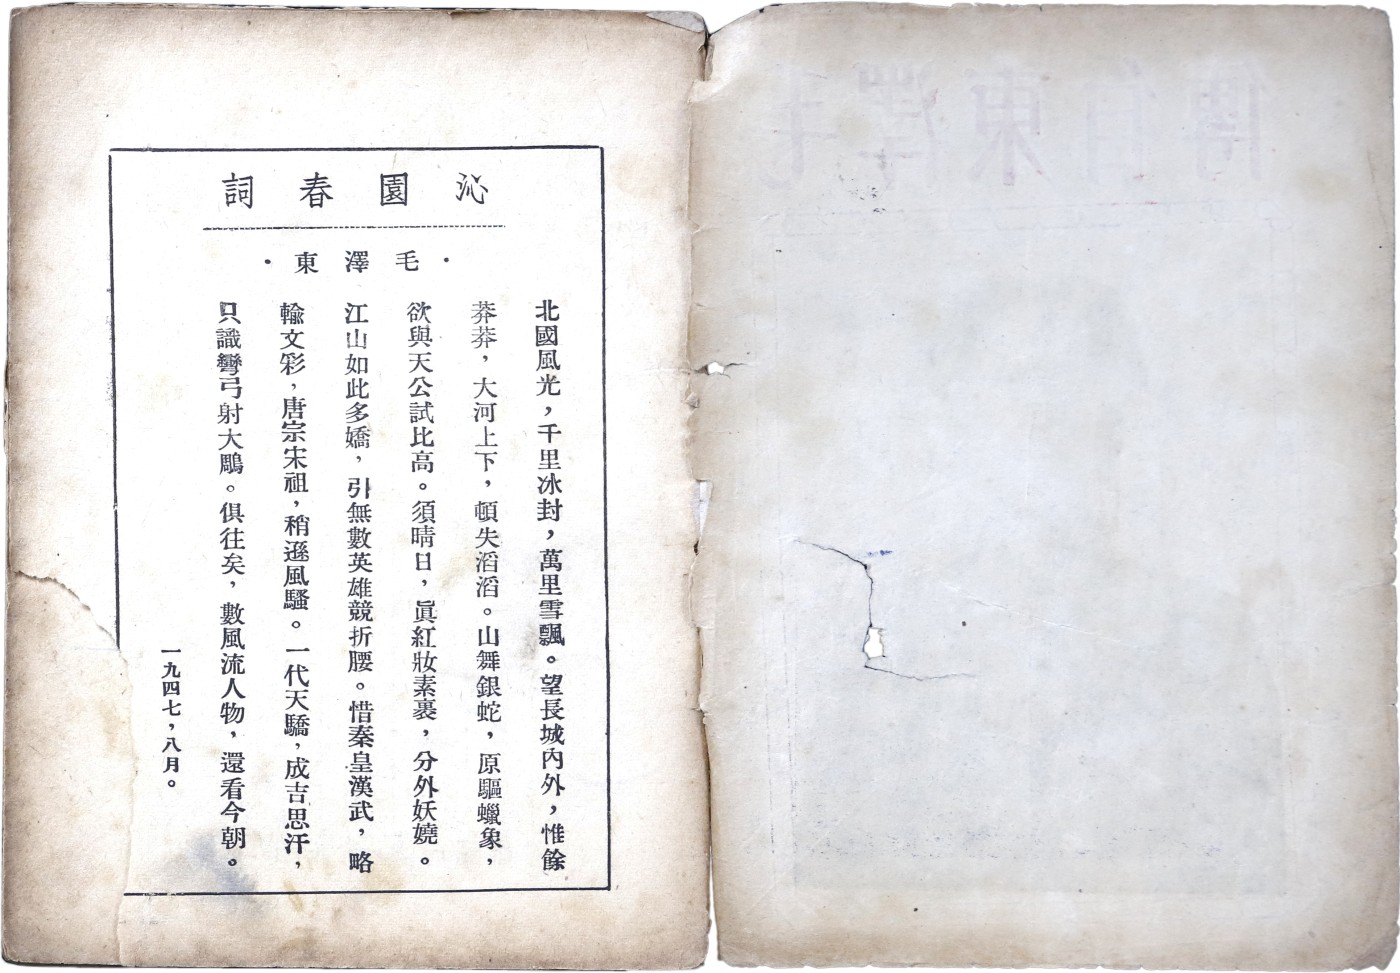 沁園春詞
·毛澤東·
北國風光，千里冰封，萬里雪飄。望長城內外，惟餘
莽莽，大河上下，頓失滔滔。山舞銀蛇，原驅蠟象，
欲與天公試比高。須晴日，眞紅妝素裹，分外妖嬈。
江山如此多嬌，引無數英雄競折腰。惜秦皇漢武，略
輸文彩，唐宗宋祖，稍遜風騷。一代天驕，成吉思汗，
只識彎弓射大鵰。俱往矣，數風流人物，還看今朝。
一九四七，八月。
毛澤東自傳